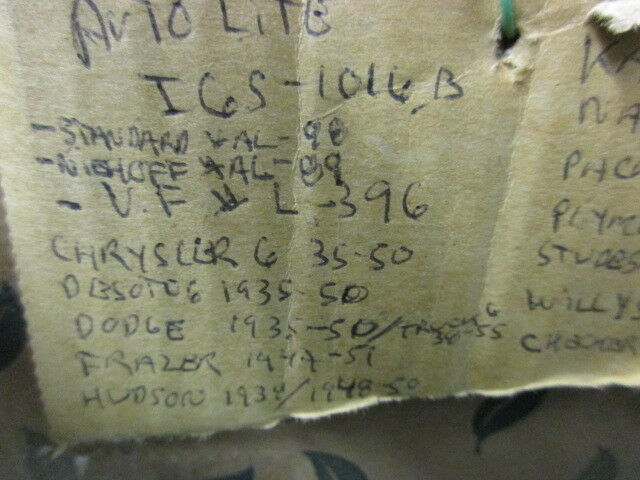 AUTO LITE
IGS-1016B
- STANDARD * AL-90
- NIEHOFF * AL-89
- V.F * L-396
CHRYSLER 6 35-50
DESOTO 6 1935-50
DODGE 1935-50/TRUCK 6
FRAZER 1947-51
HUDSON 1934/1948-50
KA
NA
PAC
PLYM
STUDEB
WILLYS
CHECKER